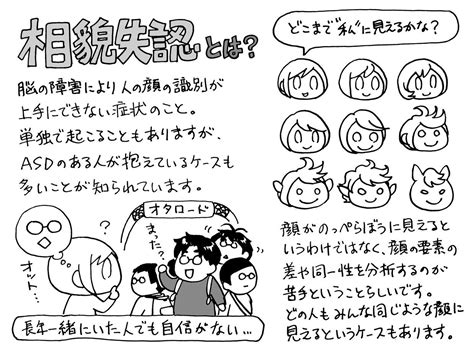 相貌失認とは?
脳の障害により人の顔の識別が
上手にできない症状のこと。
単独で起こることもありますが、
ASDのある人が抱えているケースも
多いことが知られています。
オタロード
?
また…?
オット…
長年一緒にいた人でも自信がない…
どこまで"私"に見えるかな?
顔がのっぺらぼうに見えると
いうわけではなく、顔の要素の
差や同一性を分析するのが
苦手ということらしいです。
どの人もみんな同じような顔に
見えるというケースもあります。